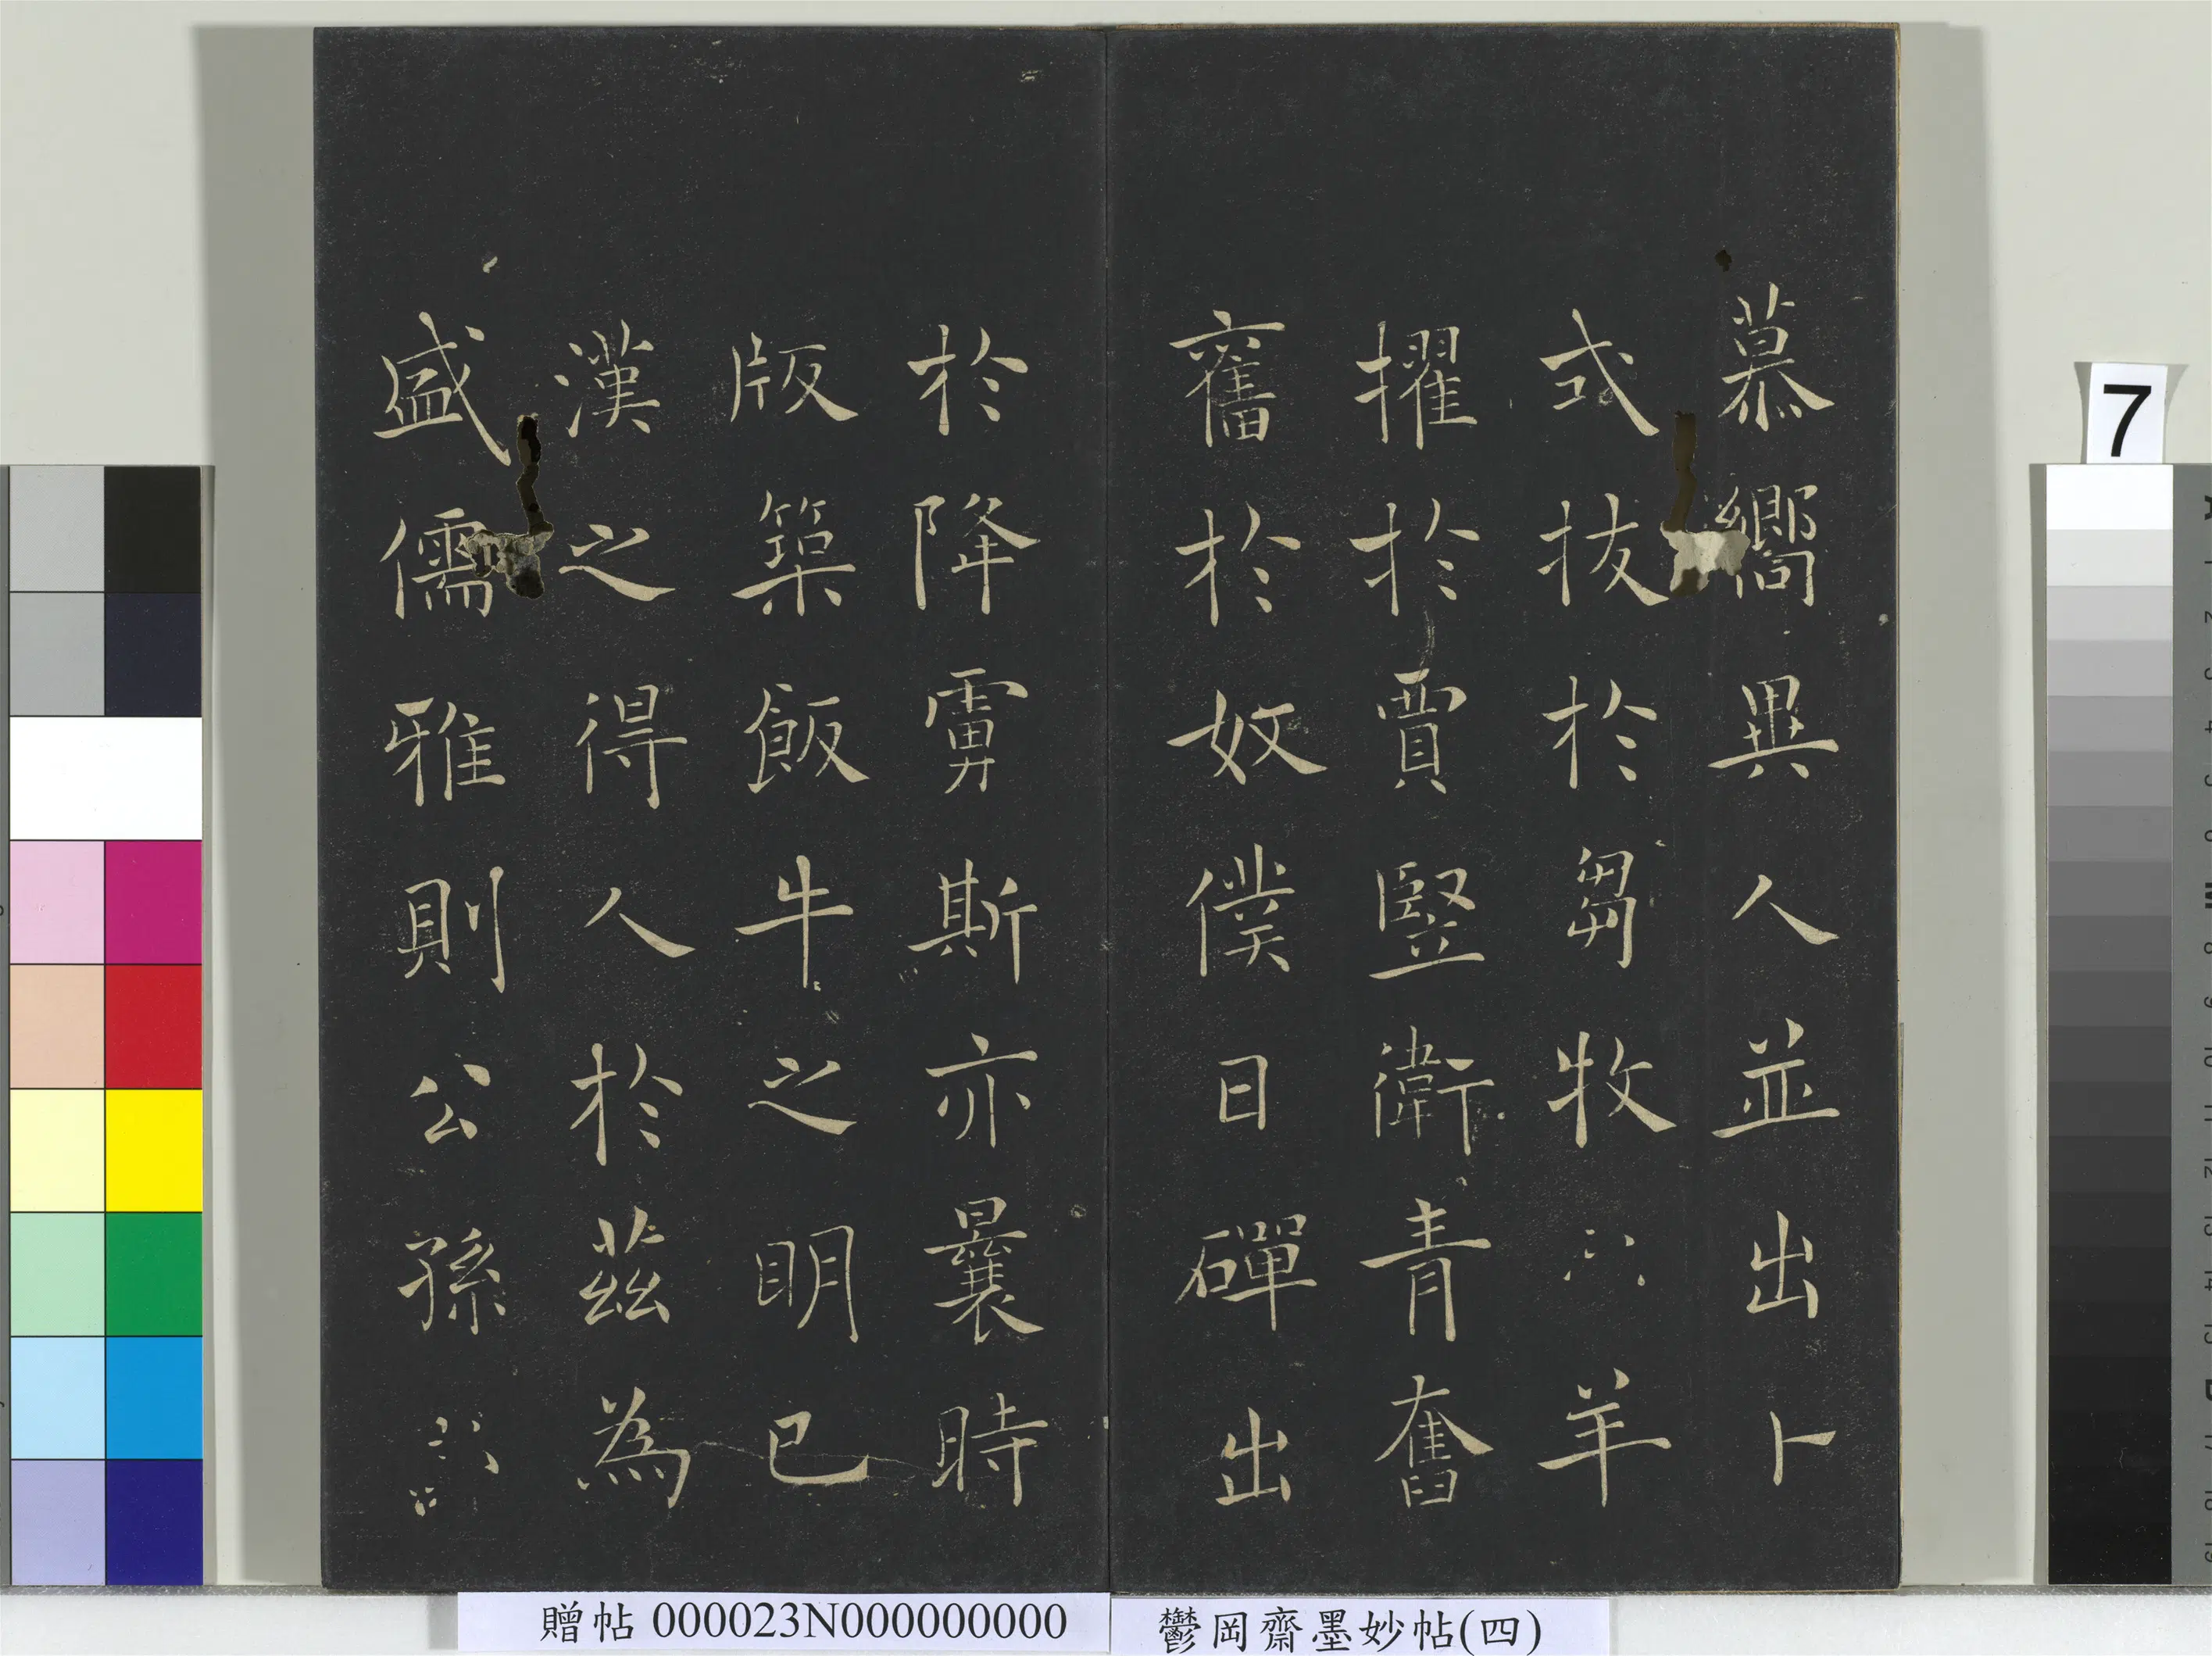 慕嚮異人並出卜
式拔於芻牧羊
擢於賈豎衛青奮
奮於奴僕日磾出
於降虜斯亦曩時
版築飯牛之明已
漢之得人於茲為
盛儒雅則公孫
7
鬱岡齋墨妙帖(四)
贈帖 000023N000000000